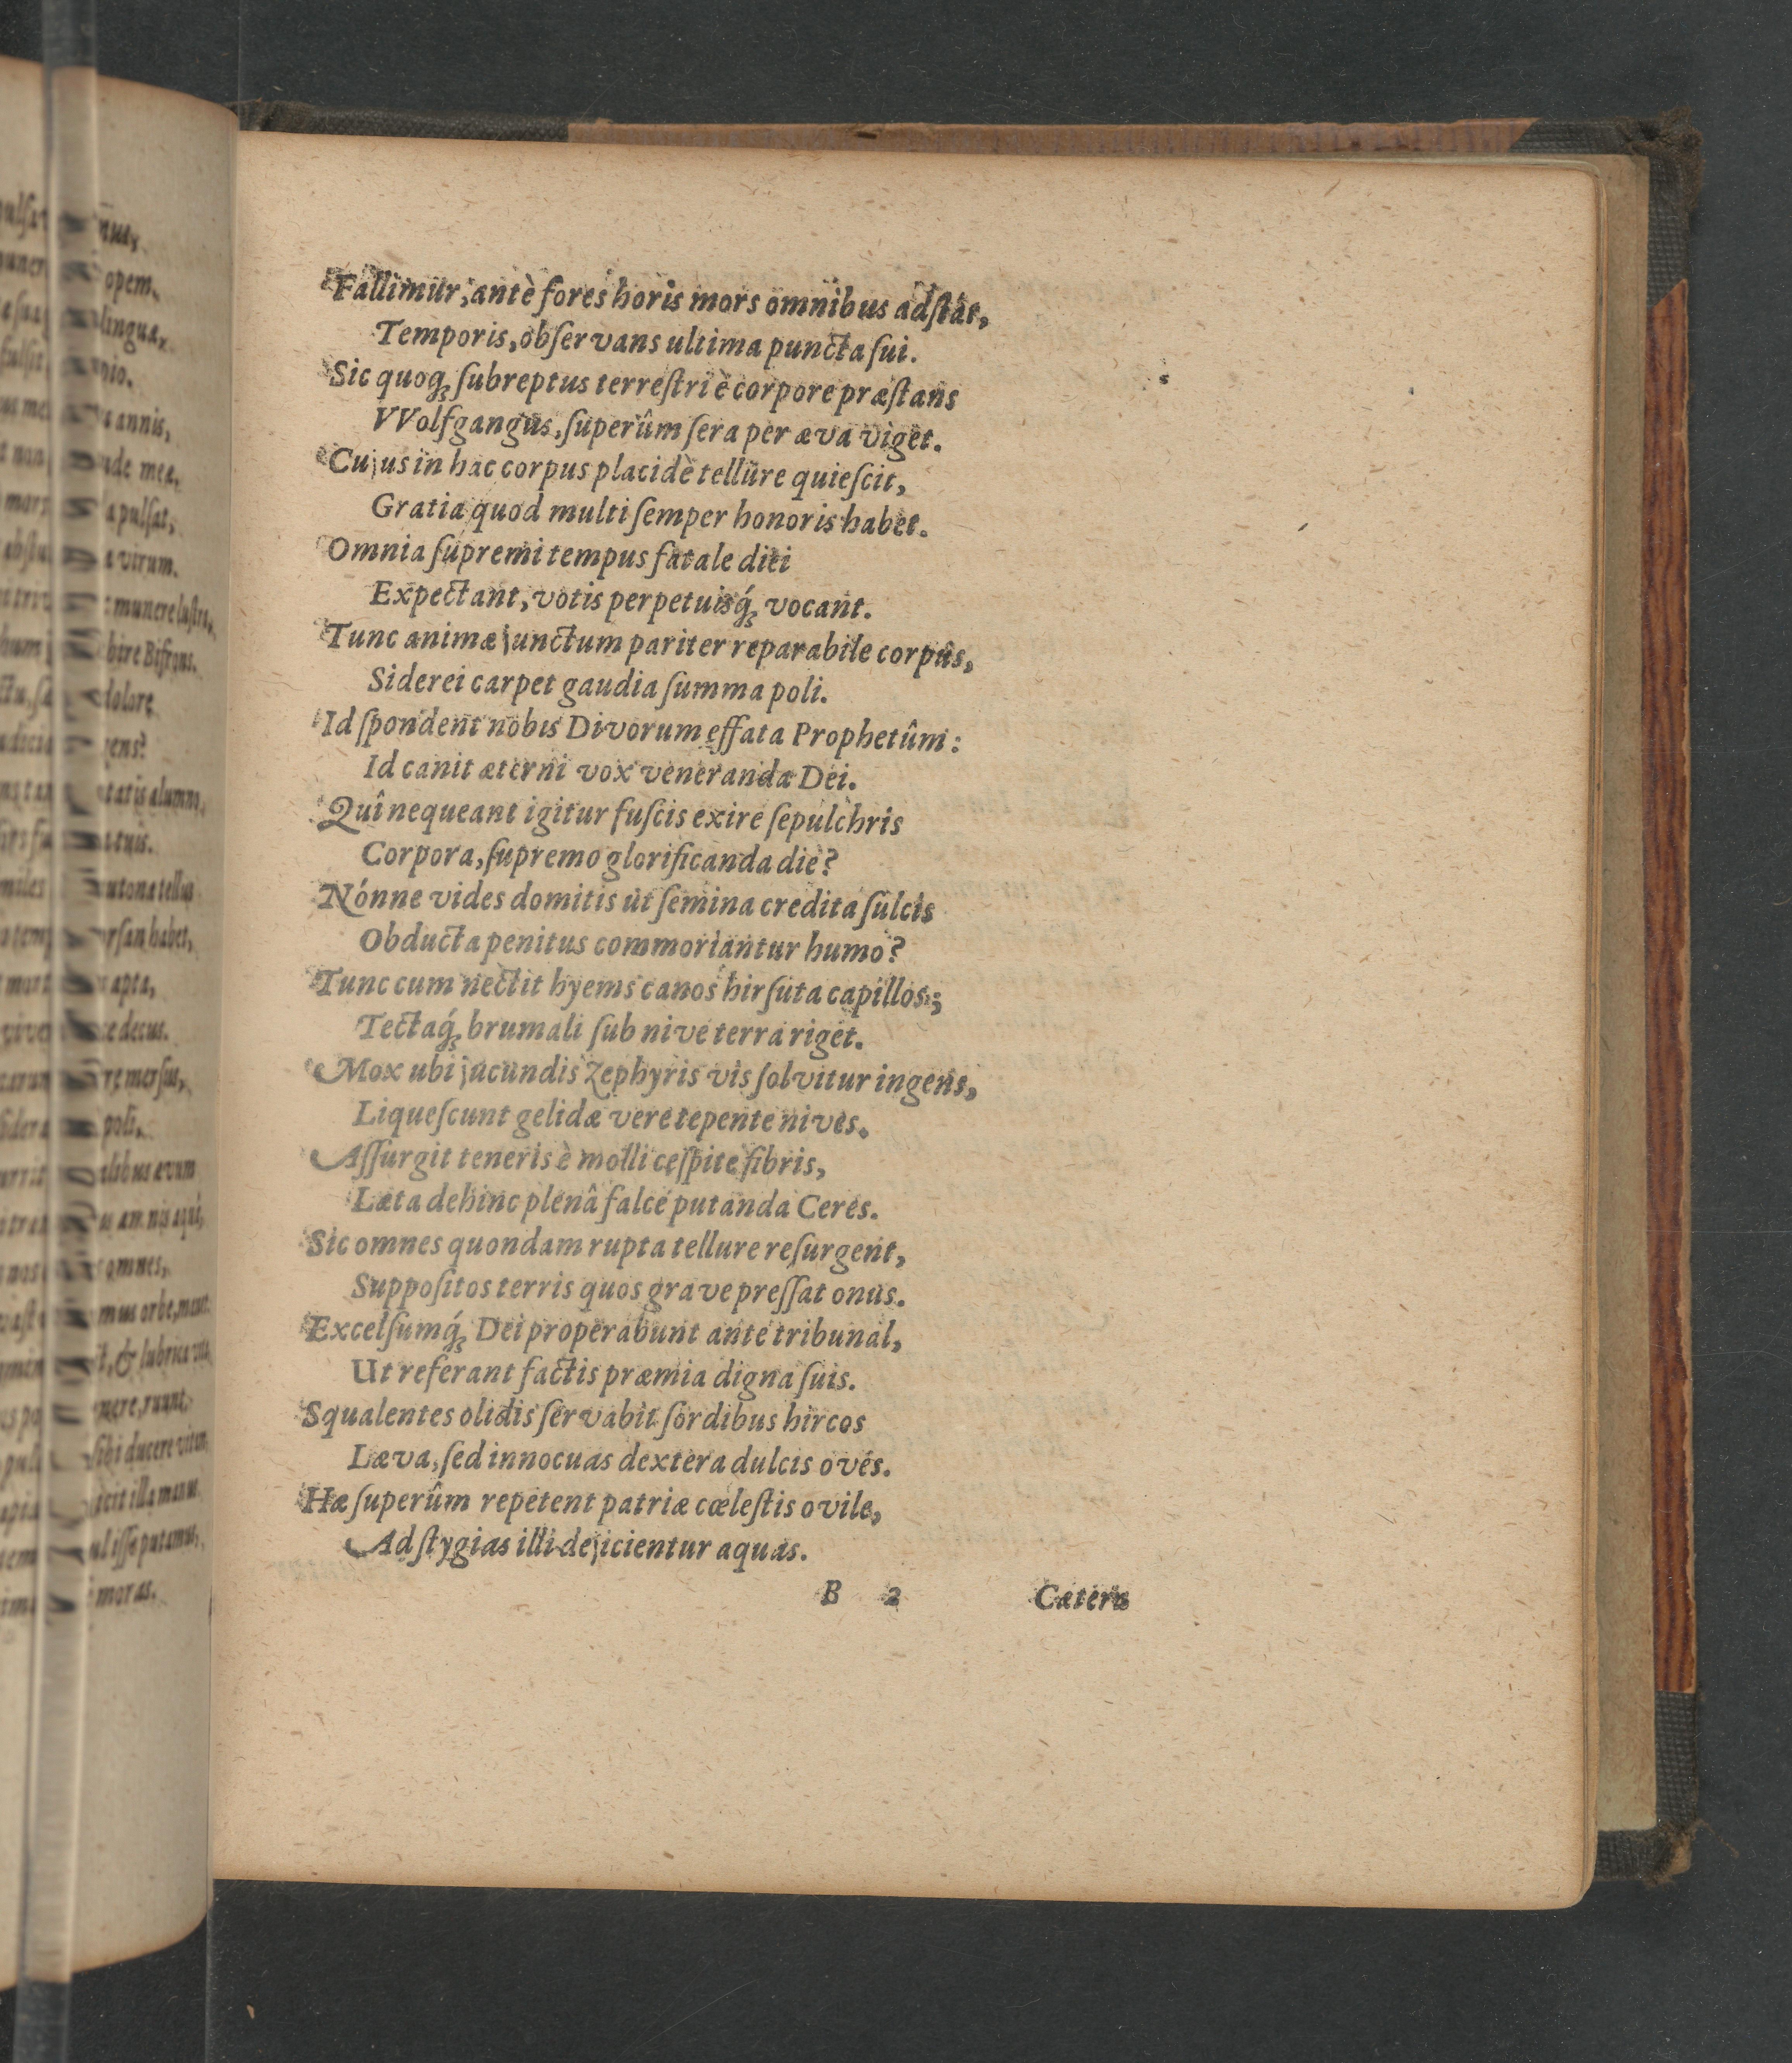 Fallimur, ante fores horis mors omnibus adſtat,
Temporis, obſervans ultima puncta ſui.
Sic quoq; ſubreptus terreſtri è corpore præſtans
VVolfgangus, ſuperûm ſera per æva viget.
Cujus in hac corpus placidè tellure quieſcit,
Gratia quod multi ſemper honoris habet.
Omnia ſupremi tempus fatale diei
Expectant, votis perpetuisq́; vocant.
Tunc animæ junctum pariter reparabile corpus,
Siderei carpet gaudia ſumma poli.
Id ſpondent nobis Divorum effata Prophetûm:
Id canit æterni vox veneranda Dei.
Quî nequeant igitur fuſcis exire ſepulchris
Corpora, ſupremo glorificanda die?
Nónne vides domitis ut ſemina credita ſulcis
Obducta penitus commoriantur humo?
Tunc cum nectit hyems canos hirſuta capillos;
Tectaq́; brumali ſub nive terra riget.
Mox ubi jucundis Zephyris vis ſolvitur ingens,
Liqueſcunt gelidæ vere tepente nives.
Aſſurgit teneris è molli ceſpite fibris,
Læta dehinc plenâ falce putanda Ceres.
Sic omnes quondam rupta tellure reſurgent,
Suppoſitos terris quos grave preſſat onus.
Excelſumq́; Dei properabunt ante tribunal,
Ut referant factis præmia digna ſuis.
Squalentes olidis ſervabit ſordibus hircos
Læva, ſed innocuas dextera dulcis oves.
Hæ ſuperûm repetent patriæ cœleſtis ovile,
Ad ſtygias illi dejicientur aquas.
B 2 Cætera